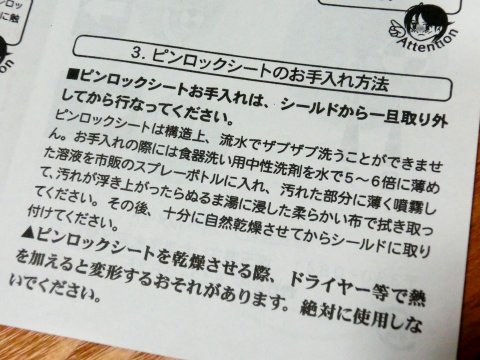 ロッ
に触
Attention
3. ピンロックシートのお手入れ方法
■ピンロックシートお手入れは、シールドから一旦取り外
してから行なってください。
ピンロックシートは構造上、流水でザブザブ洗うことができませ
ん。お手入れの際には食器洗い用中性洗剤を水で5～6倍に薄め
た溶液を市販のスプレーボトルに入れ、汚れた部分に薄く噴霧し
て、汚れが浮き上がったらぬるま湯に浸した柔らかい布で拭き取っ
てください。その後、十分に自然乾燥させてからシールドに取り
付けてください。
▲ピンロックシートを乾燥させる際、ドライヤー等で熱
を加えると変形するおそれがあります。絶対に使用しな
いでください。